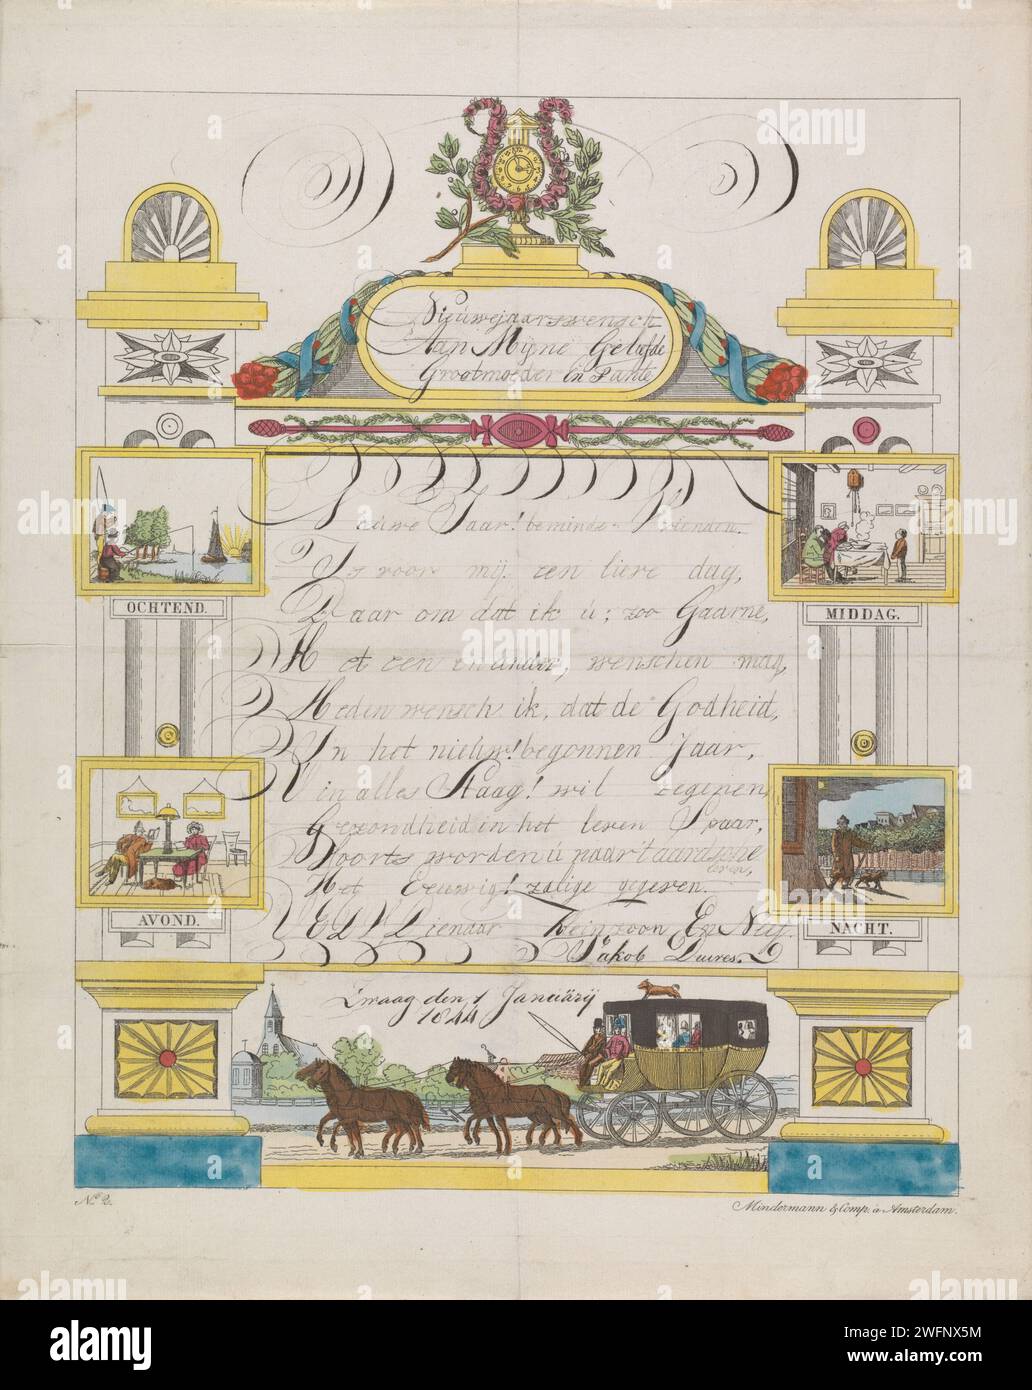 Nieuwejaarswensch
Aan Mijne Geliefde
Grootmoeder En Tante
Nieuwe Jaar! beminde Vrienden.
Is voor mij een lieve dag,
Daar om dat ik u; zoo Gaarne,
Met een en ander, wenschen mag,
Heden wensch ik, dat de Godheid,
In het nieuw! begonnen Jaar,
in alles Staag! wil zegenen
Gezondheid in het leven Spaar,
Voorts worden u naar 't aardsche
leven,
Het Eeuwig! zalige gegeven.
UEDW Dienaar Kleinzoon En Neef.
Jakob
Zwaag den 1 Januarij
1844
OCHTEND.
MIDDAG.
AVOND.
NACHT.
No. 2.
Mindermann & Comp. à Amsterdam.
alamy
alamy
alamy
Image ID: 2WFNX5M
www.alamy.com